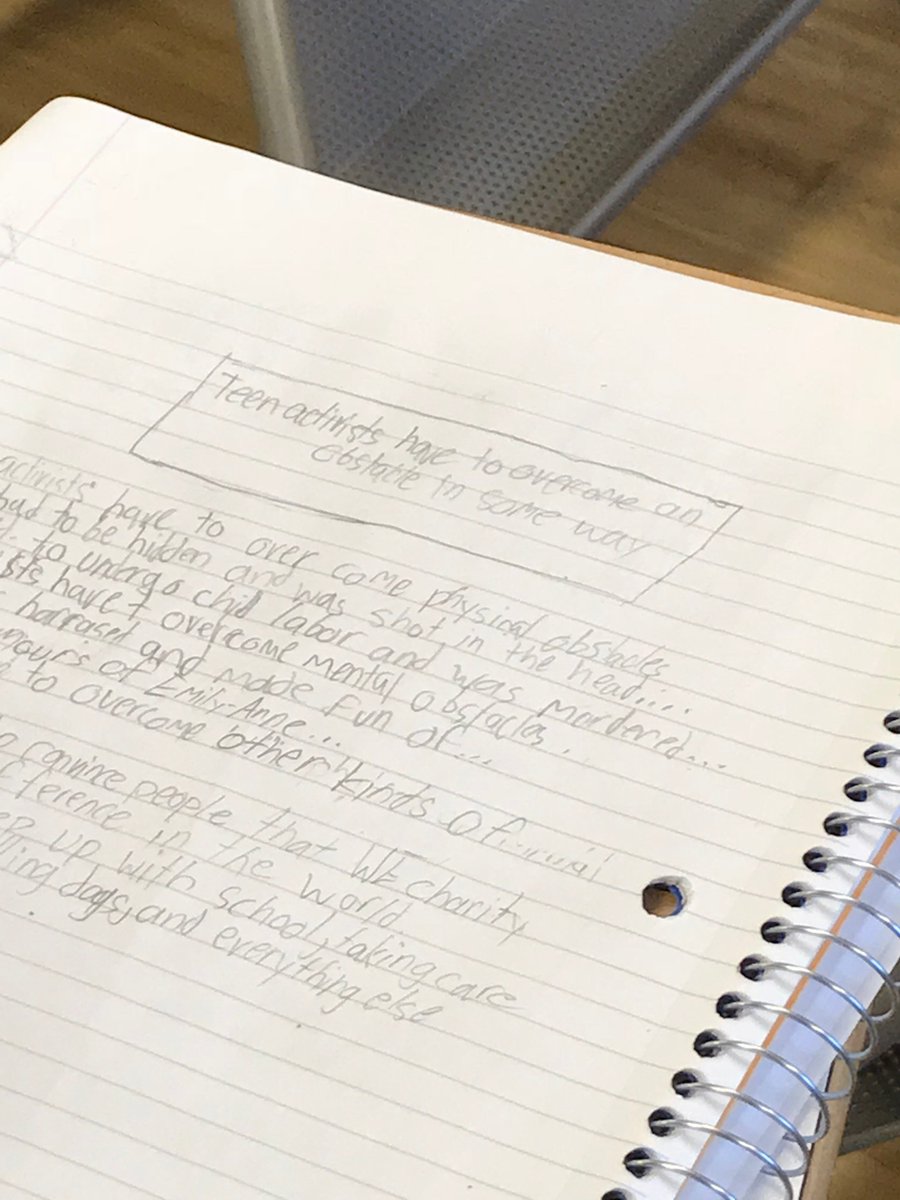 Teen activists have to overcome an
obstacle in some way
activists have to over come physical obstacles
had to be hidden and was shot in the head....
to undergo child labor and was mordered...
have overcome mental obstacles.
harraset and made fun of...
of Emily-Anne...
to overcome other kinds of
convince people that WE charity
ference in the world
up with school, taking care
ling dogs, and everything else